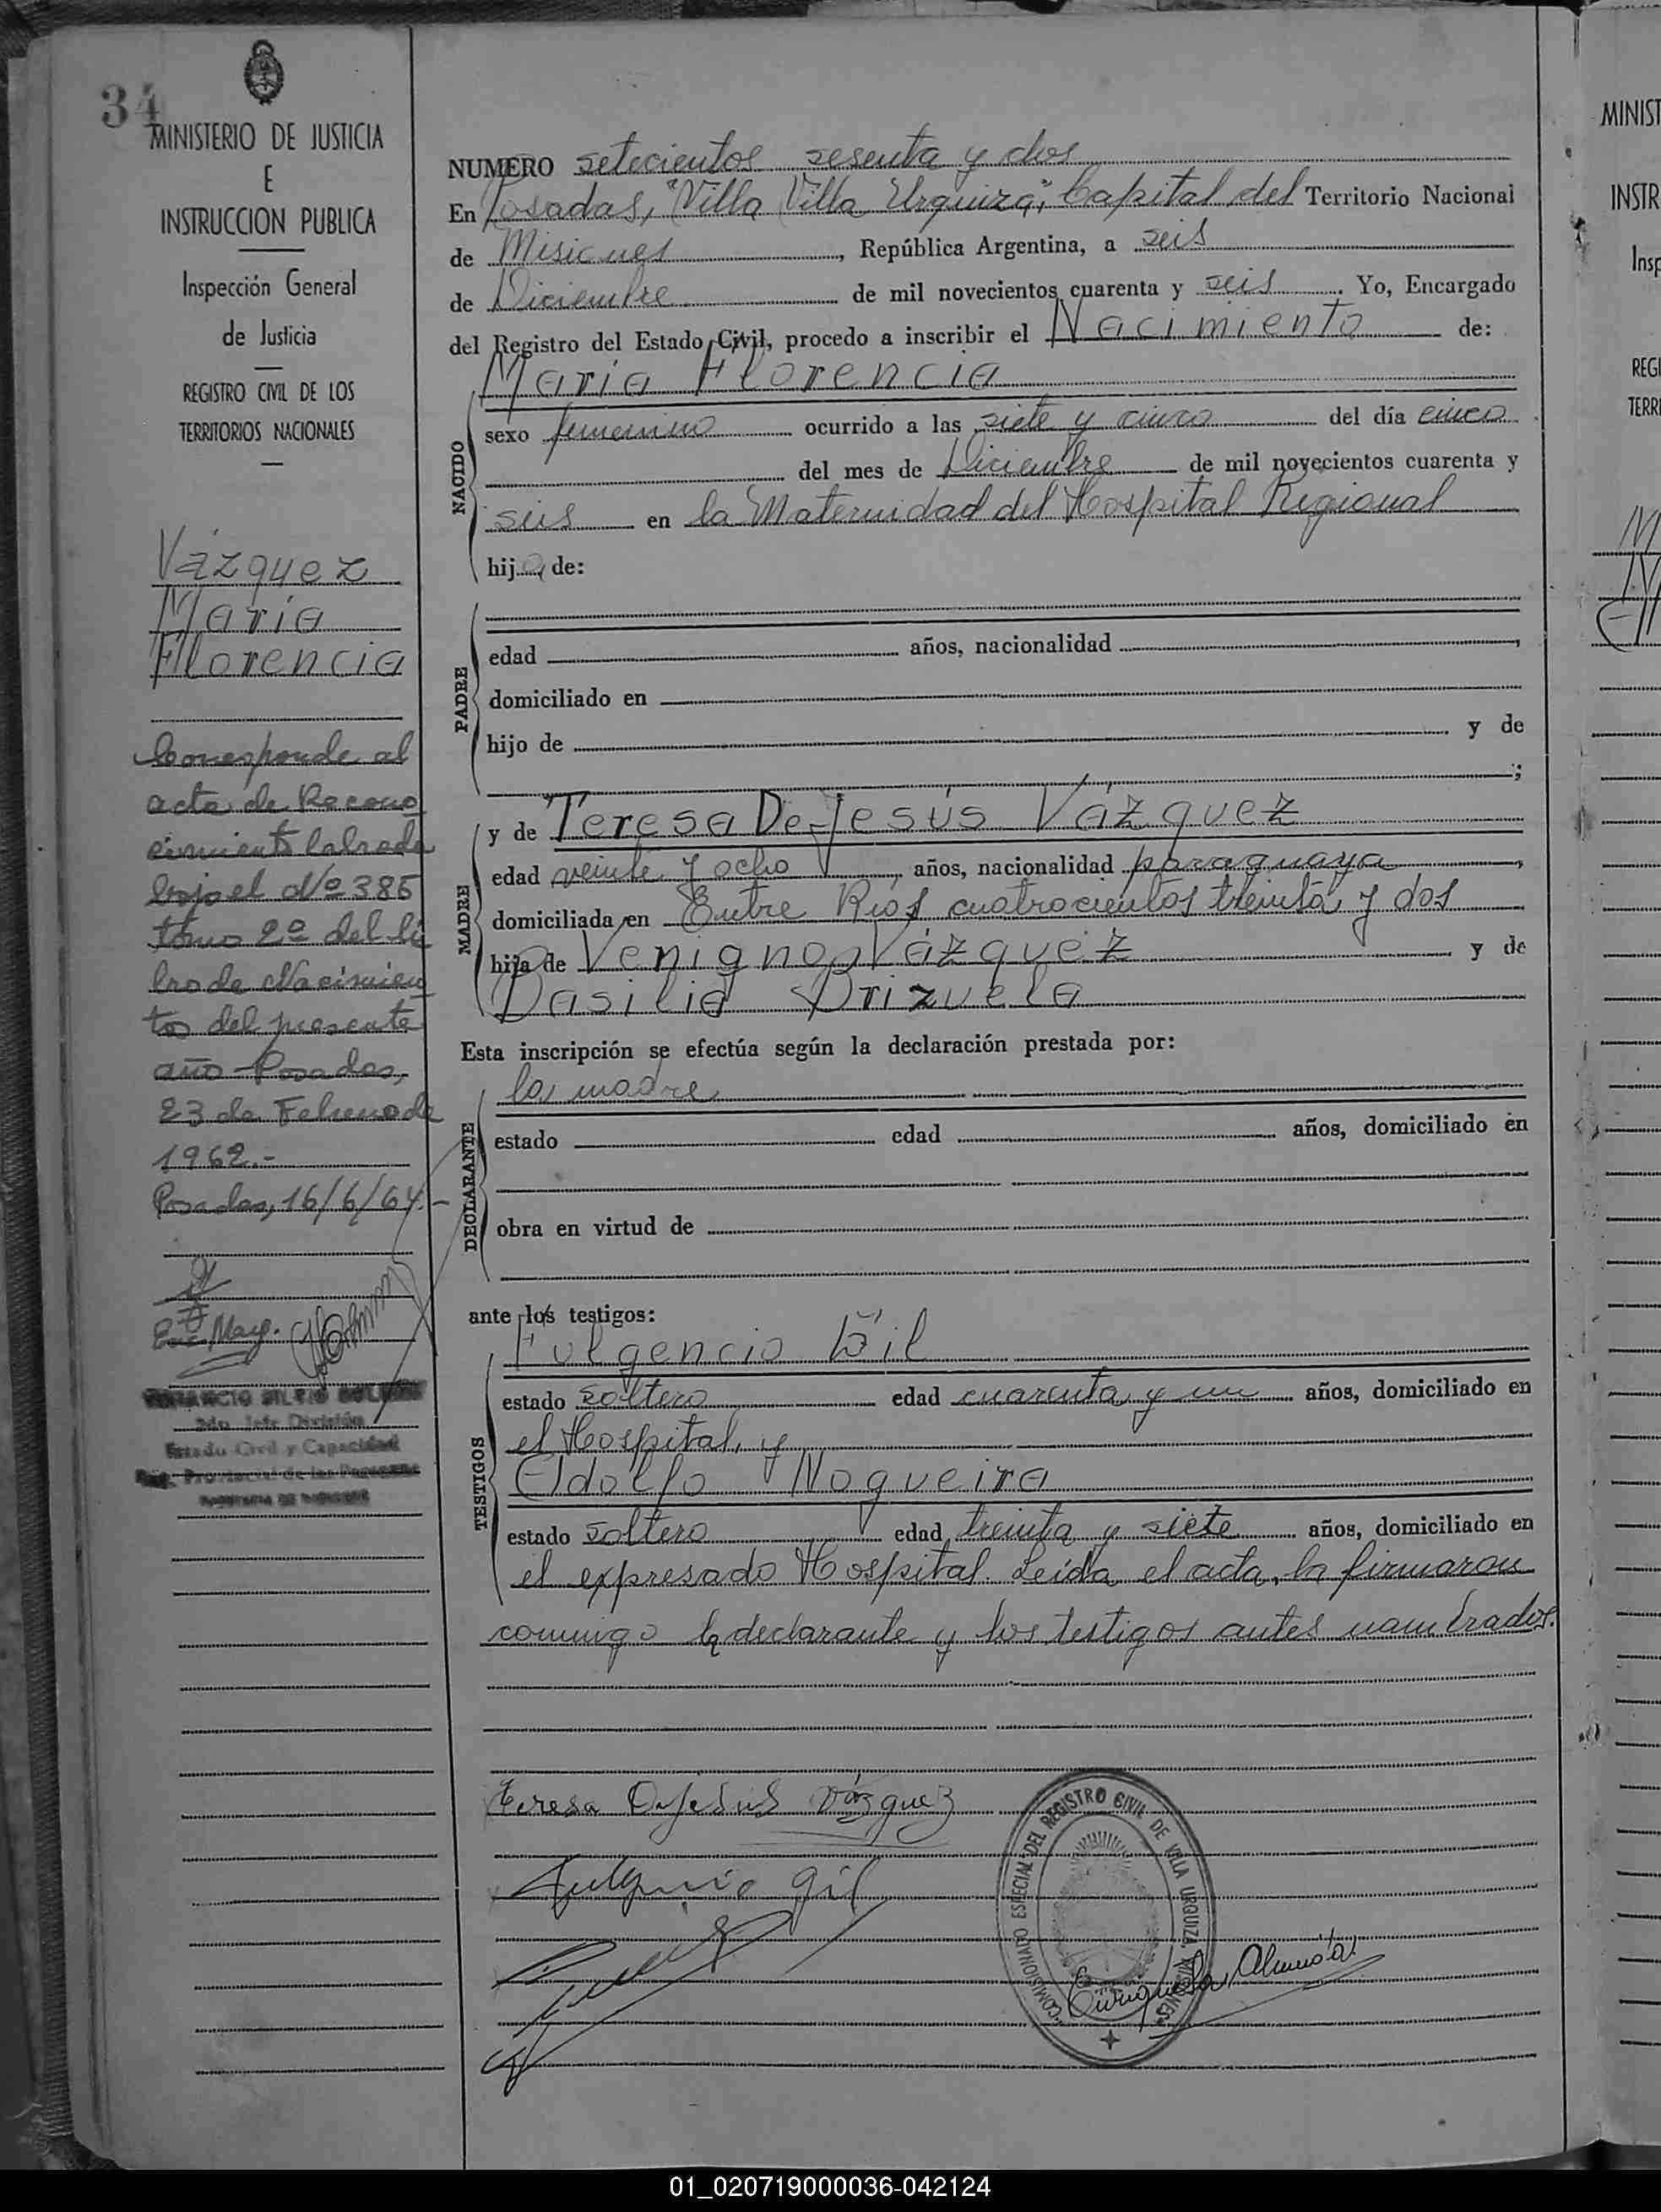 34
MINISTERIO DE JUSTICIA
E
INSTRUCCION PUBLICA
Inspección General
de Justicia
REGISTRO CIVIL DE LOS
TERRITORIOS NACIONALES
Vázquez
María
Florencia
Corresponde al
acta de Recono
cimiento labrada
bajo el Nº 385
tomo 2º del li
bro de Nacimien
tos del presente
año Posadas,
23 de Febrero de
1962.-
Posadas, 16/6/64.-
Enc. Mayo.
2do. Jefe División
Estado Civil y Capacidad
Reg. Provincial de las Personas
NUMERO setecientos sesenta y dos
En Posadas, "Villa Villa Urquiza", Capital del Territorio Nacional
de Misiones, República Argentina, a seis
de Diciembre de mil novecientos cuarenta y seis. Yo, Encargado
del Registro del Estado Civil, procedo a inscribir el Nacimiento de:
NACIDO
María Florencia
sexo femenino ocurrido a las siete y cinco del día cinco
del mes de Diciembre de mil novecientos cuarenta y
seis en la Maternidad del Hospital Regional
hija, de:
PADRE
edad años, nacionalidad ,
domiciliado en
hijo de y de
;
MADRE
y de Teresa De Jesús Vázquez
edad veinte y ocho, años, nacionalidad paraguaya,
domiciliada en Entre Ríos cuatrocientos treinta y dos
hija de Venigno Vázquez y de
Basilia Brizuela
Esta inscripción se efectúa según la declaración prestada por:
DECLARANTE
la madre
estado edad años, domiciliado en
obra en virtud de
ante los testigos:
TESTIGOS
Fulgencio Gil
estado soltero edad cuarenta y un años, domiciliado en
el Hospital, y
Adolfo Nogueira
estado soltero edad treinta y siete años, domiciliado en
el expresado Hospital. Leída el acta, la firmaron
conmigo la declarante y los testigos antes nombrados.
Teresa Dejesus Vázquez
Fulgencio Gil
COMISIONADO ESPECIAL DEL REGISTRO CIVIL DE VILLA URQUIZA, MISIONES
MINIST
INSTR
Insp
REGI
TERR
01_020719000036-042124